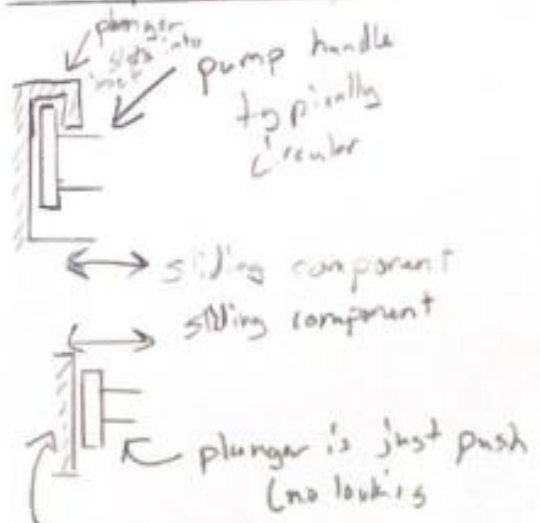 plunger
slots into
inset
pump handle
typically
circular
sliding component
sliding component
plunger is just push
(no locking